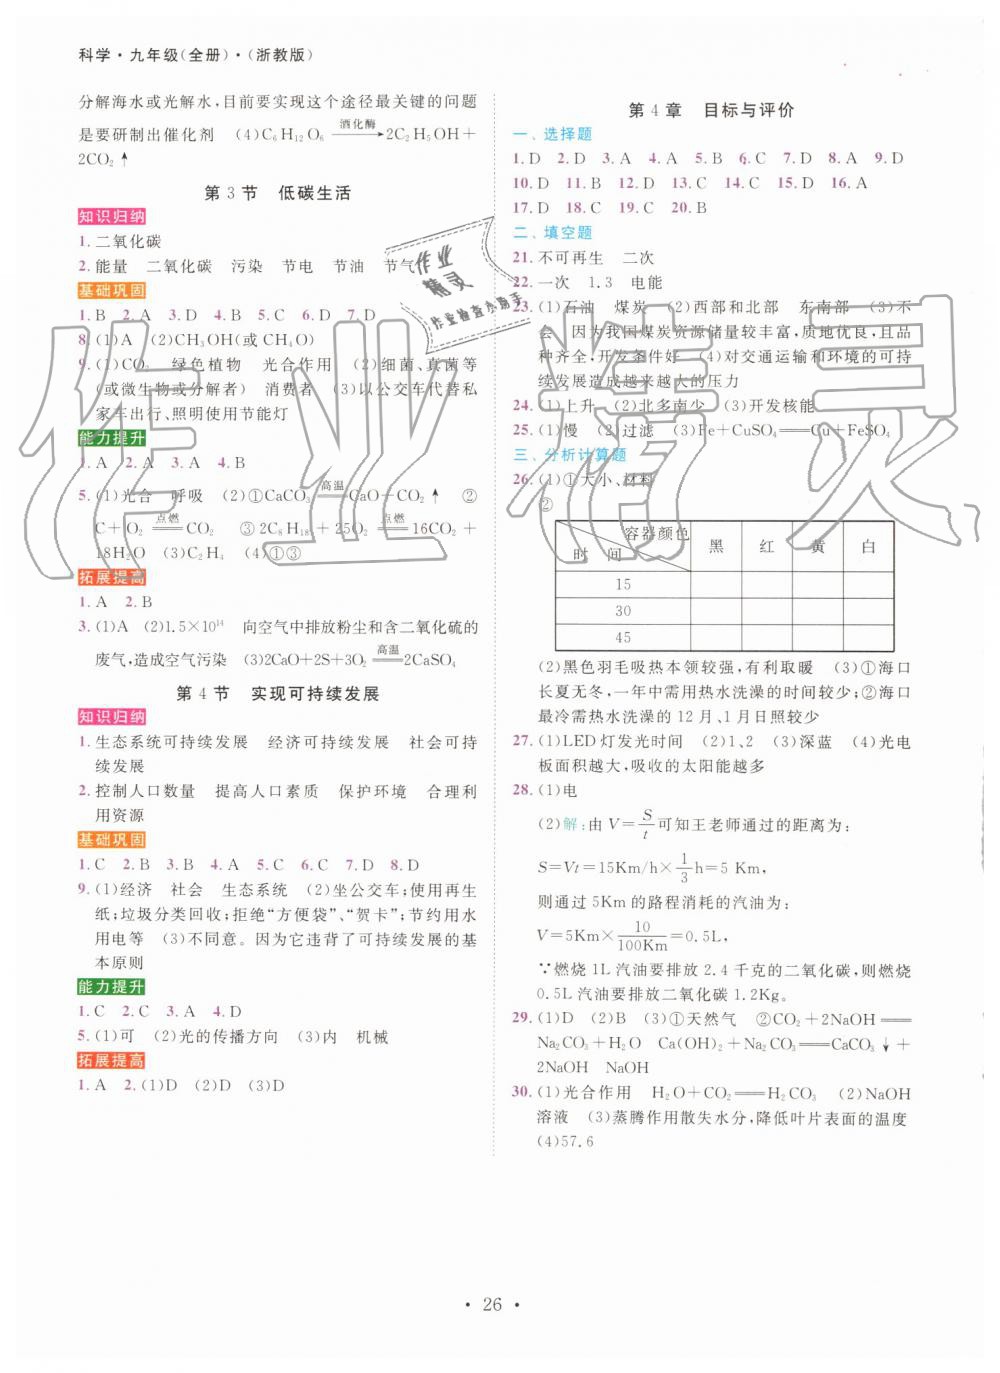 科学·九年级(全册)·(浙教版)
分解海水或光解水,目前要实现这个途径最关键的问题
是要研制出催化剂 (4)C₆H₁₂O₆ 酒化酶→ 2C₂H₅OH+
2CO₂↑
第3节 低碳生活
知识归纳
1. 二氧化碳
2. 能量 二氧化碳 污染 节电 节油 节气
基础巩固
1. B 2. A 3. D 4. B 5. C 6. D 7. D
8. (1)A (2)CH₃OH(或CH₄O)
9. (1)CO₂ 绿色植物 光合作用 (2)细菌、真菌等
(或微生物或分解者) 消费者 (3)以公交车代替私
家车出行、照明使用节能灯
能力提升
1. A 2. A 3. A 4. B
5. (1)光合 呼吸 (2)①CaCO₃ 高温══ CaO+CO₂↑ ②
C+O₂ 点燃══ CO₂ ③2C₈H₁₈+25O₂ 点燃══ 16CO₂+
18H₂O (3)C₂H₄ (4)①③
拓展提高
1. A 2. B
3. (1)A (2)1.5×10¹⁴ 向空气中排放粉尘和含二氧化硫的
废气,造成空气污染 (3)2CaO+2S+3O₂ 高温══ 2CaSO₄
第4节 实现可持续发展
知识归纳
1. 生态系统可持续发展 经济可持续发展 社会可持
续发展
2. 控制人口数量 提高人口素质 保护环境 合理利
用资源
基础巩固
1. C 2. B 3. B 4. A 5. C 6. C 7. D 8. D
9. (1)经济 社会 生态系统 (2)坐公交车;使用再生
纸;垃圾分类回收;拒绝“方便袋”、“贺卡”;节约用水
用电等 (3)不同意。因为它违背了可持续发展的基
本原则
能力提升
1. C 2. C 3. A 4. D
5. (1)可 (2)光的传播方向 (3)内 机械
拓展提高
1. A 2. (1)D (2)D (3)D
第4章 目标与评价
一、选择题
1. D 2. D 3. A 4. A 5. B 6. C 7. D 8. A 9. D
10. D 11. B 12. D 13. C 14. C 15. D 16. A
17. D 18. C 19. C 20. B
二、填空题
21. 不可再生 二次
22. 一次 1.3 电能
23. (1)石油 煤炭 (2)西部和北部 东南部 (3)不
会 因为我国煤炭资源储量较丰富,质地优良,且品
种齐全,开发条件好 (4)对交通运输和环境的可持
续发展造成越来越大的压力
24. (1)上升 (2)北多南少 (3)开发核能
25. (1)慢 (2)过滤 (3)Fe+CuSO₄══Cu+FeSO₄
三、分析计算题
26. (1)①大小、材料
②
容器颜色 时间 黑 红 黄 白
15
30
45
(2)黑色羽毛吸热本领较强,有利取暖 (3)①海口
长夏无冬,一年中需用热水洗澡的时间较少;②海口
最冷需热水洗澡的12月、1月日照较少
27. (1)LED灯发光时间 (2)1、2 (3)深蓝 (4)光电
板面积越大,吸收的太阳能越多
28. (1)电
(2)解:由V=S/t可知王老师通过的距离为:
S=Vt=15Km/h×1/3h=5 Km,
则通过5Km的路程消耗的汽油为:
V=5Km×10/100Km=0.5L,
∵燃烧1L汽油要排放2.4千克的二氧化碳,则燃烧
0.5L汽油要排放二氧化碳1.2Kg。
29. (1)D (2)B (3)①天然气 ②CO₂+2NaOH══
Na₂CO₃+H₂O Ca(OH)₂+Na₂CO₃══CaCO₃↓+
2NaOH NaOH
30. (1)光合作用 H₂O+CO₂══H₂CO₃ (2)NaOH
溶液 (3)蒸腾作用散失水分,降低叶片表面的温度
(4)57.6
作业精灵
作业
精灵
作业检查小助手
· 26 ·